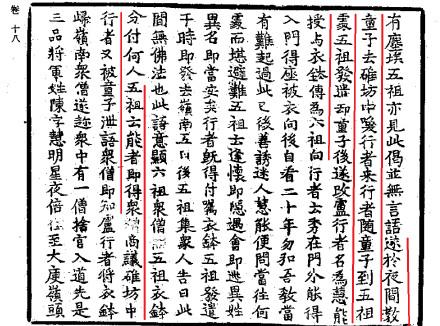 有塵埃五祖亦見此偈並無言語遂於夜間教
童子去碓坊中喚行者来行者随童子到五祖
處五祖發遣却童子後遂改盧行者名為慧能
授与衣鉢傳為六祖向行者云秀在門外能得
入門得座被衣向後自看二十年勿弘吾教當
有難起過此已後善誘迷人慧能便問當往何
處而堪避難五祖云逢懷即隱遇會即逃異姓
異名即當安矣行者既得付囑衣鉢五祖發遣
于時即發去嶺南五日後五祖集衆人告曰此
間無佛法也此語意顯六祖衆僧問五祖衣鉢
分付何人五祖云能者即得衆僧商議碓坊中
行者又被童子泄語衆僧即知盧行者將衣鉢
歸嶺南衆僧遂趁衆中有一僧捨官入道先是
三品將軍姓陳字慧明星夜倍程至大庾嶺頭
卷十八